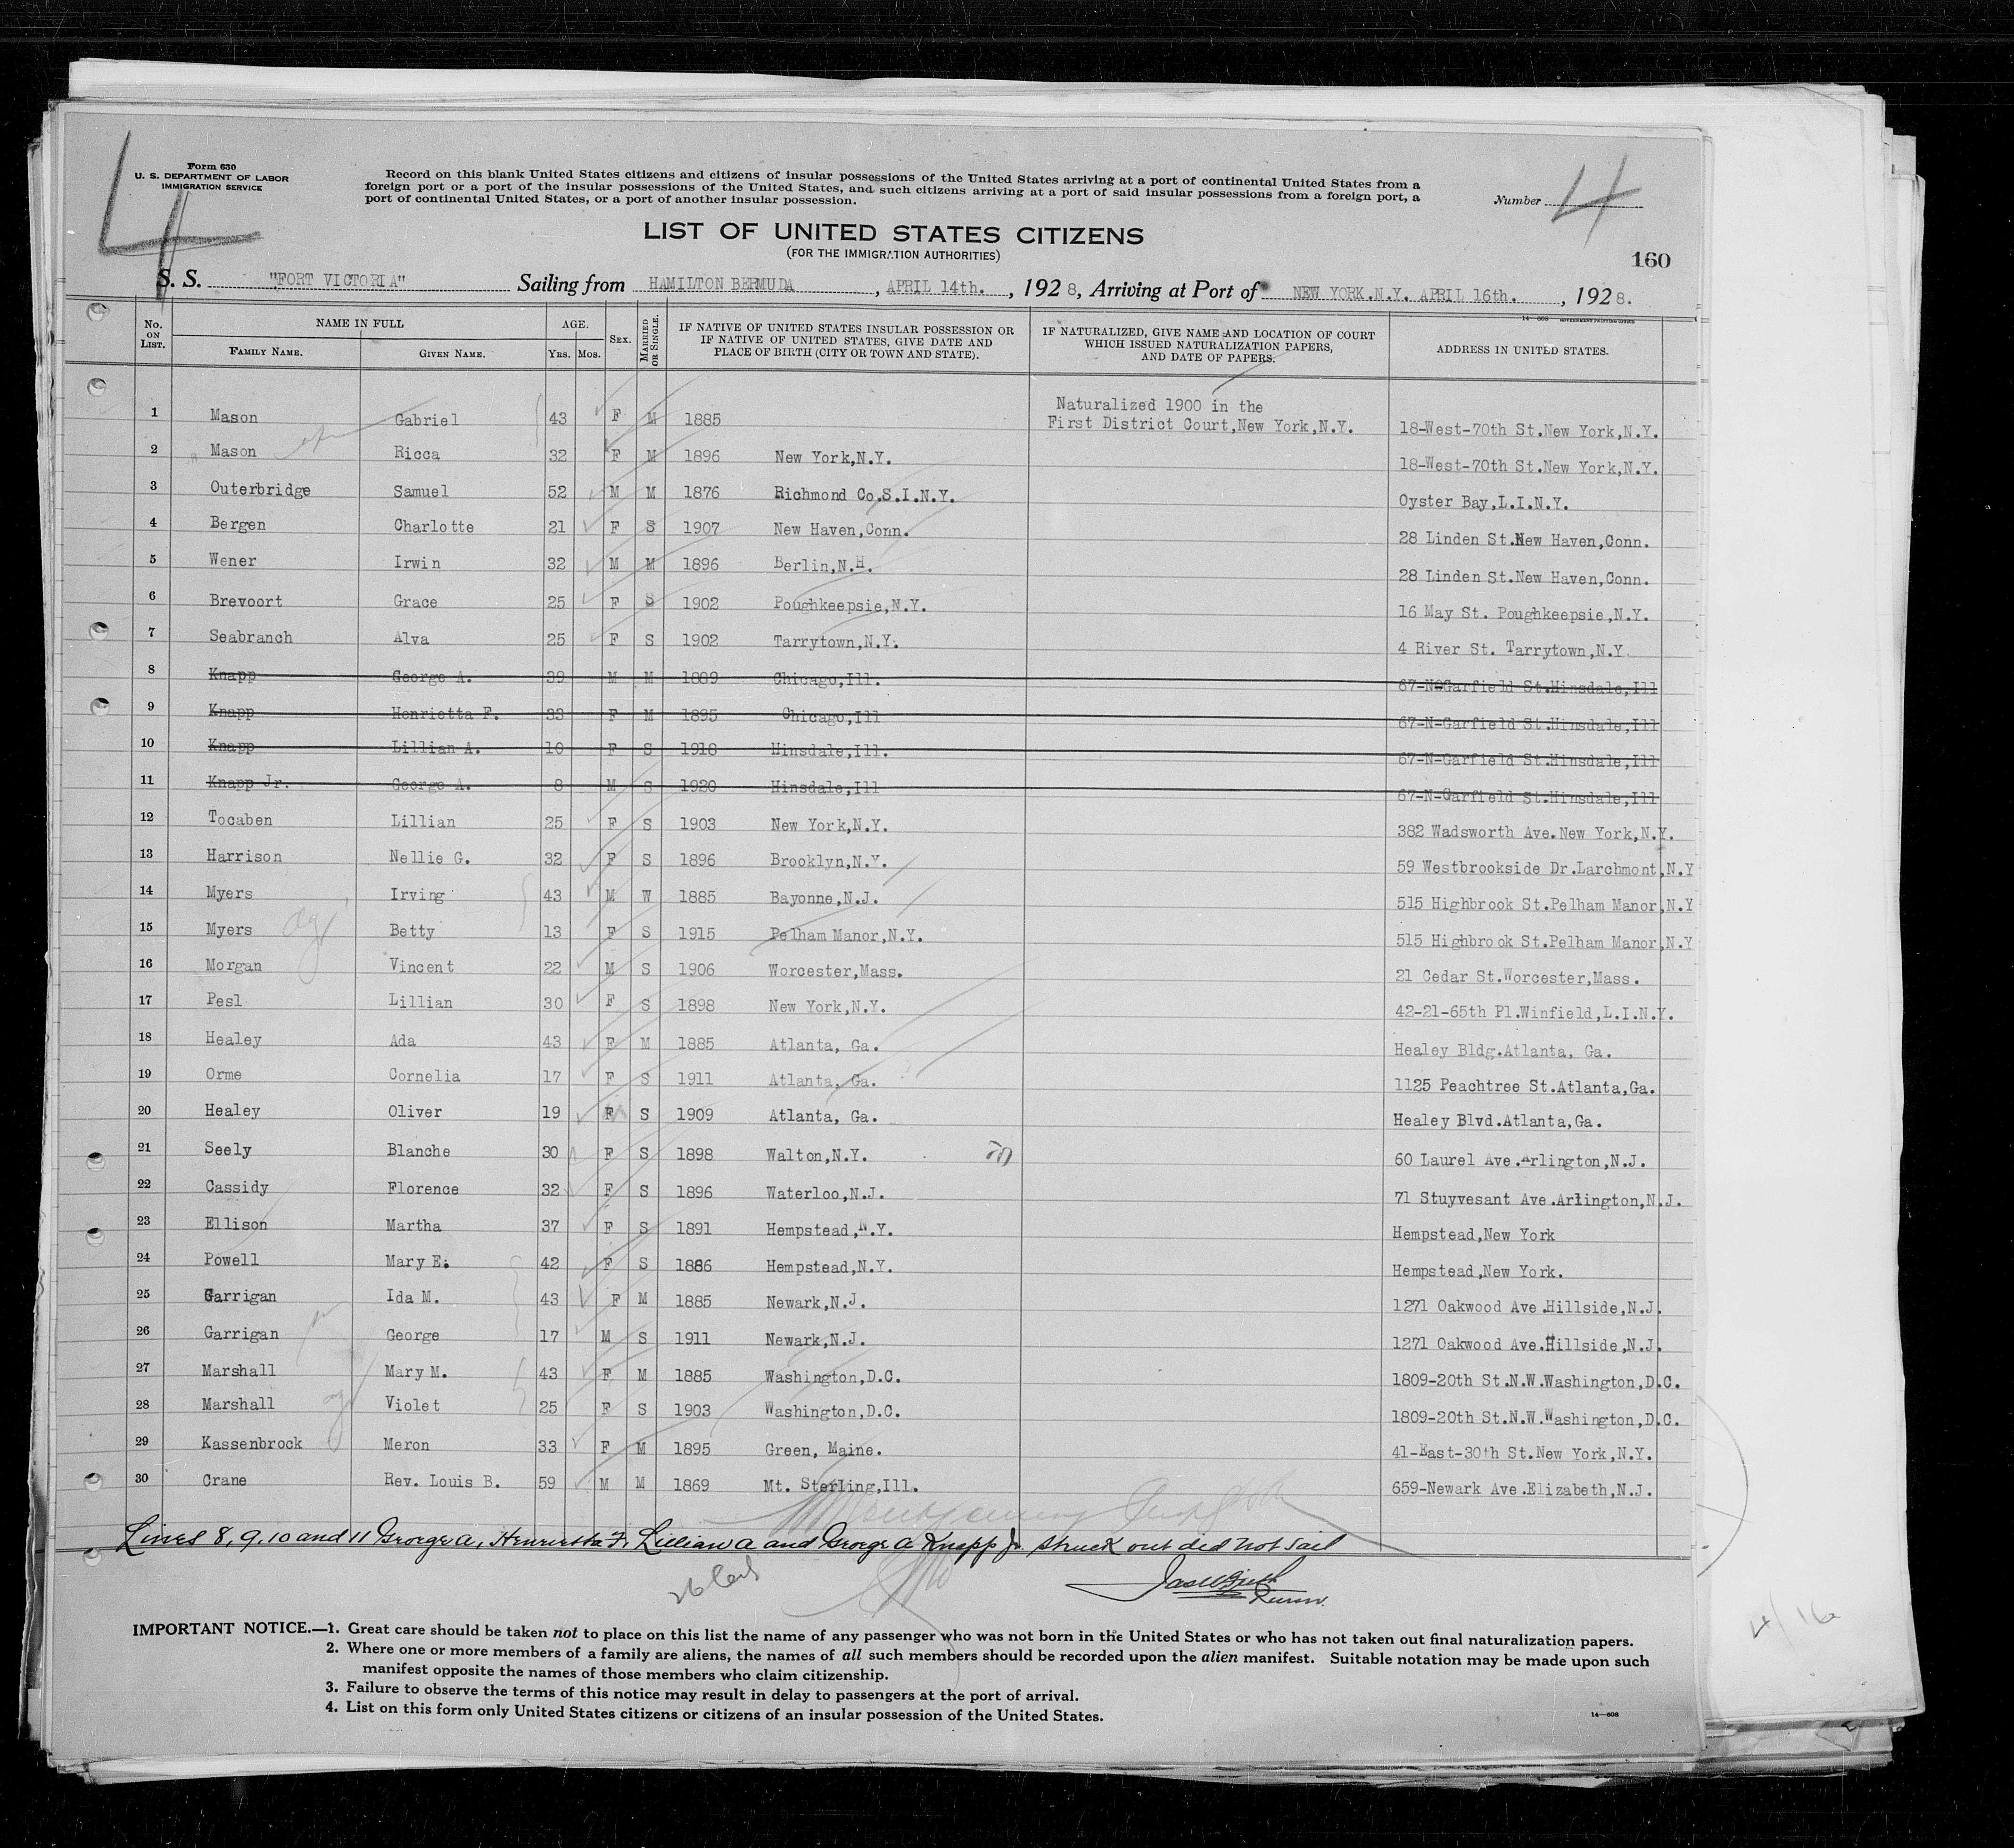 4
Form 630
U. S. DEPARTMENT OF LABOR
IMMIGRATION SERVICE
Record on this blank United States citizens and citizens of insular possessions of the United States arriving at a port of continental United States from a
foreign port or a port of the insular possessions of the United States, and such citizens arriving at a port of said insular possessions from a foreign port, a
port of continental United States, or a port of another insular possession.
Number 4
LIST OF UNITED STATES CITIZENS
(FOR THE IMMIGRATION AUTHORITIES)
160
S. S. "FORT VICTORIA" Sailing from HAMILTON BERMUDA, APRIL 14th., 1928, Arriving at Port of NEW YORK.N.Y. APRIL 16th., 1928.
14—608 GOVERNMENT PRINTING OFFICE
No. ON LIST.
NAME IN FULL
FAMILY NAME.
GIVEN NAME.
AGE.
YRS.
MOS.
SEX.
MARRIED OR SINGLE.
IF NATIVE OF UNITED STATES INSULAR POSSESSION OR
IF NATIVE OF UNITED STATES, GIVE DATE AND
PLACE OF BIRTH (CITY OR TOWN AND STATE).
IF NATURALIZED, GIVE NAME AND LOCATION OF COURT
WHICH ISSUED NATURALIZATION PAPERS,
AND DATE OF PAPERS.
ADDRESS IN UNITED STATES.
1 Mason Gabriel 43 F M 1885 Naturalized 1900 in the First District Court,New York,N.Y. 18-West-70th St.New York,N.Y.
2 Mason Ricca 32 F M 1896 New York,N.Y. 18-West-70th St.New York,N.Y.
3 Outerbridge Samuel 52 M M 1876 Richmond Co.S.I.N.Y. Oyster Bay,L.I.N.Y.
4 Bergen Charlotte 21 F S 1907 New Haven,Conn. 28 Linden St.New Haven,Conn.
5 Wener Irwin 32 M M 1896 Berlin,N.H. 28 Linden St.New Haven,Conn.
6 Brevoort Grace 25 F S 1902 Poughkeepsie,N.Y. 16 May St. Poughkeepsie,N.Y.
7 Seabranch Alva 25 F S 1902 Tarrytown,N.Y. 4 River St. Tarrytown,N.Y.
8 Knapp George A. 39 M M 1889 Chicago,Ill. 67-N-Garfield St.Hinsdale,Ill
9 Knapp Henrietta F. 33 F M 1895 Chicago,Ill 67-N-Garfield St.Hinsdale,Ill
10 Knapp Lillian A. 10 F S 1918 Hinsdale,Ill. 67-N-Garfield St.Hinsdale,Ill
11 Knapp Jr. George A. 8 M S 1920 Hinsdale,Ill 67-N-Garfield St.Hinsdale,Ill
12 Tocaben Lillian 25 F S 1903 New York,N.Y. 382 Wadsworth Ave.New York,N.Y.
13 Harrison Nellie G. 32 F S 1896 Brooklyn,N.Y. 59 Westbrookside Dr.Larchmont,N.Y
14 Myers Irving 43 M W 1885 Bayonne,N.J. 515 Highbrook St.Pelham Manor,N.Y
15 Myers Betty 13 F S 1915 Pelham Manor,N.Y. 515 Highbrook St.Pelham Manor,N.Y
16 Morgan Vincent 22 M S 1906 Worcester,Mass. 21 Cedar St.Worcester,Mass.
17 Pesl Lillian 30 F S 1898 New York,N.Y. 42-21-65th Pl.Winfield,L.I.N.Y.
18 Healey Ada 43 F M 1885 Atlanta, Ga. Healey Bldg.Atlanta, Ga.
19 Orme Cornelia 17 F S 1911 Atlanta, Ga. 1125 Peachtree St.Atlanta,Ga.
20 Healey Oliver 19 F M S 1909 Atlanta, Ga. Healey Blvd.Atlanta,Ga.
21 Seely Blanche 30 F S 1898 Walton,N.Y. 60 Laurel Ave.Arlington,N.J.
22 Cassidy Florence 32 F S 1896 Waterloo,N.J. 71 Stuyvesant Ave.Arlington,N.J.
23 Ellison Martha 37 F S 1891 Hempstead,N.Y. Hempstead,New York
24 Powell Mary E. 42 F S 1886 Hempstead,N.Y. Hempstead,New York.
25 Garrigan Ida M. 43 F M 1885 Newark,N.J. 1271 Oakwood Ave.Hillside,N.J.
26 Garrigan George 17 M S 1911 Newark,N.J. 1271 Oakwood Ave.Hillside,N.J.
27 Marshall Mary M. 43 F M 1885 Washington,D.C. 1809-20th St.N.W.Washington,D.C.
28 Marshall Violet 25 F S 1903 Washington,D.C. 1809-20th St.N.W.Washington,D.C.
29 Kassenbrock Meron 33 F M 1895 Green, Maine. 41-East-30th St.New York,N.Y.
30 Crane Rev. Louis B. 59 M M 1869 Mt. Sterling,Ill. 659-Newark Ave.Elizabeth,N.J.
Lines 8, 9, 10 and 11 George A, Henrietta F, Lillian A and George A Knapp Jr struck out did not sail
IMPORTANT NOTICE.—1. Great care should be taken not to place on this list the name of any passenger who was not born in the United States or who has not taken out final naturalization papers.
2. Where one or more members of a family are aliens, the names of all such members should be recorded upon the alien manifest. Suitable notation may be made upon such
manifest opposite the names of those members who claim citizenship.
3. Failure to observe the terms of this notice may result in delay to passengers at the port of arrival.
4. List on this form only United States citizens or citizens of an insular possession of the United States.
14—608
4/16